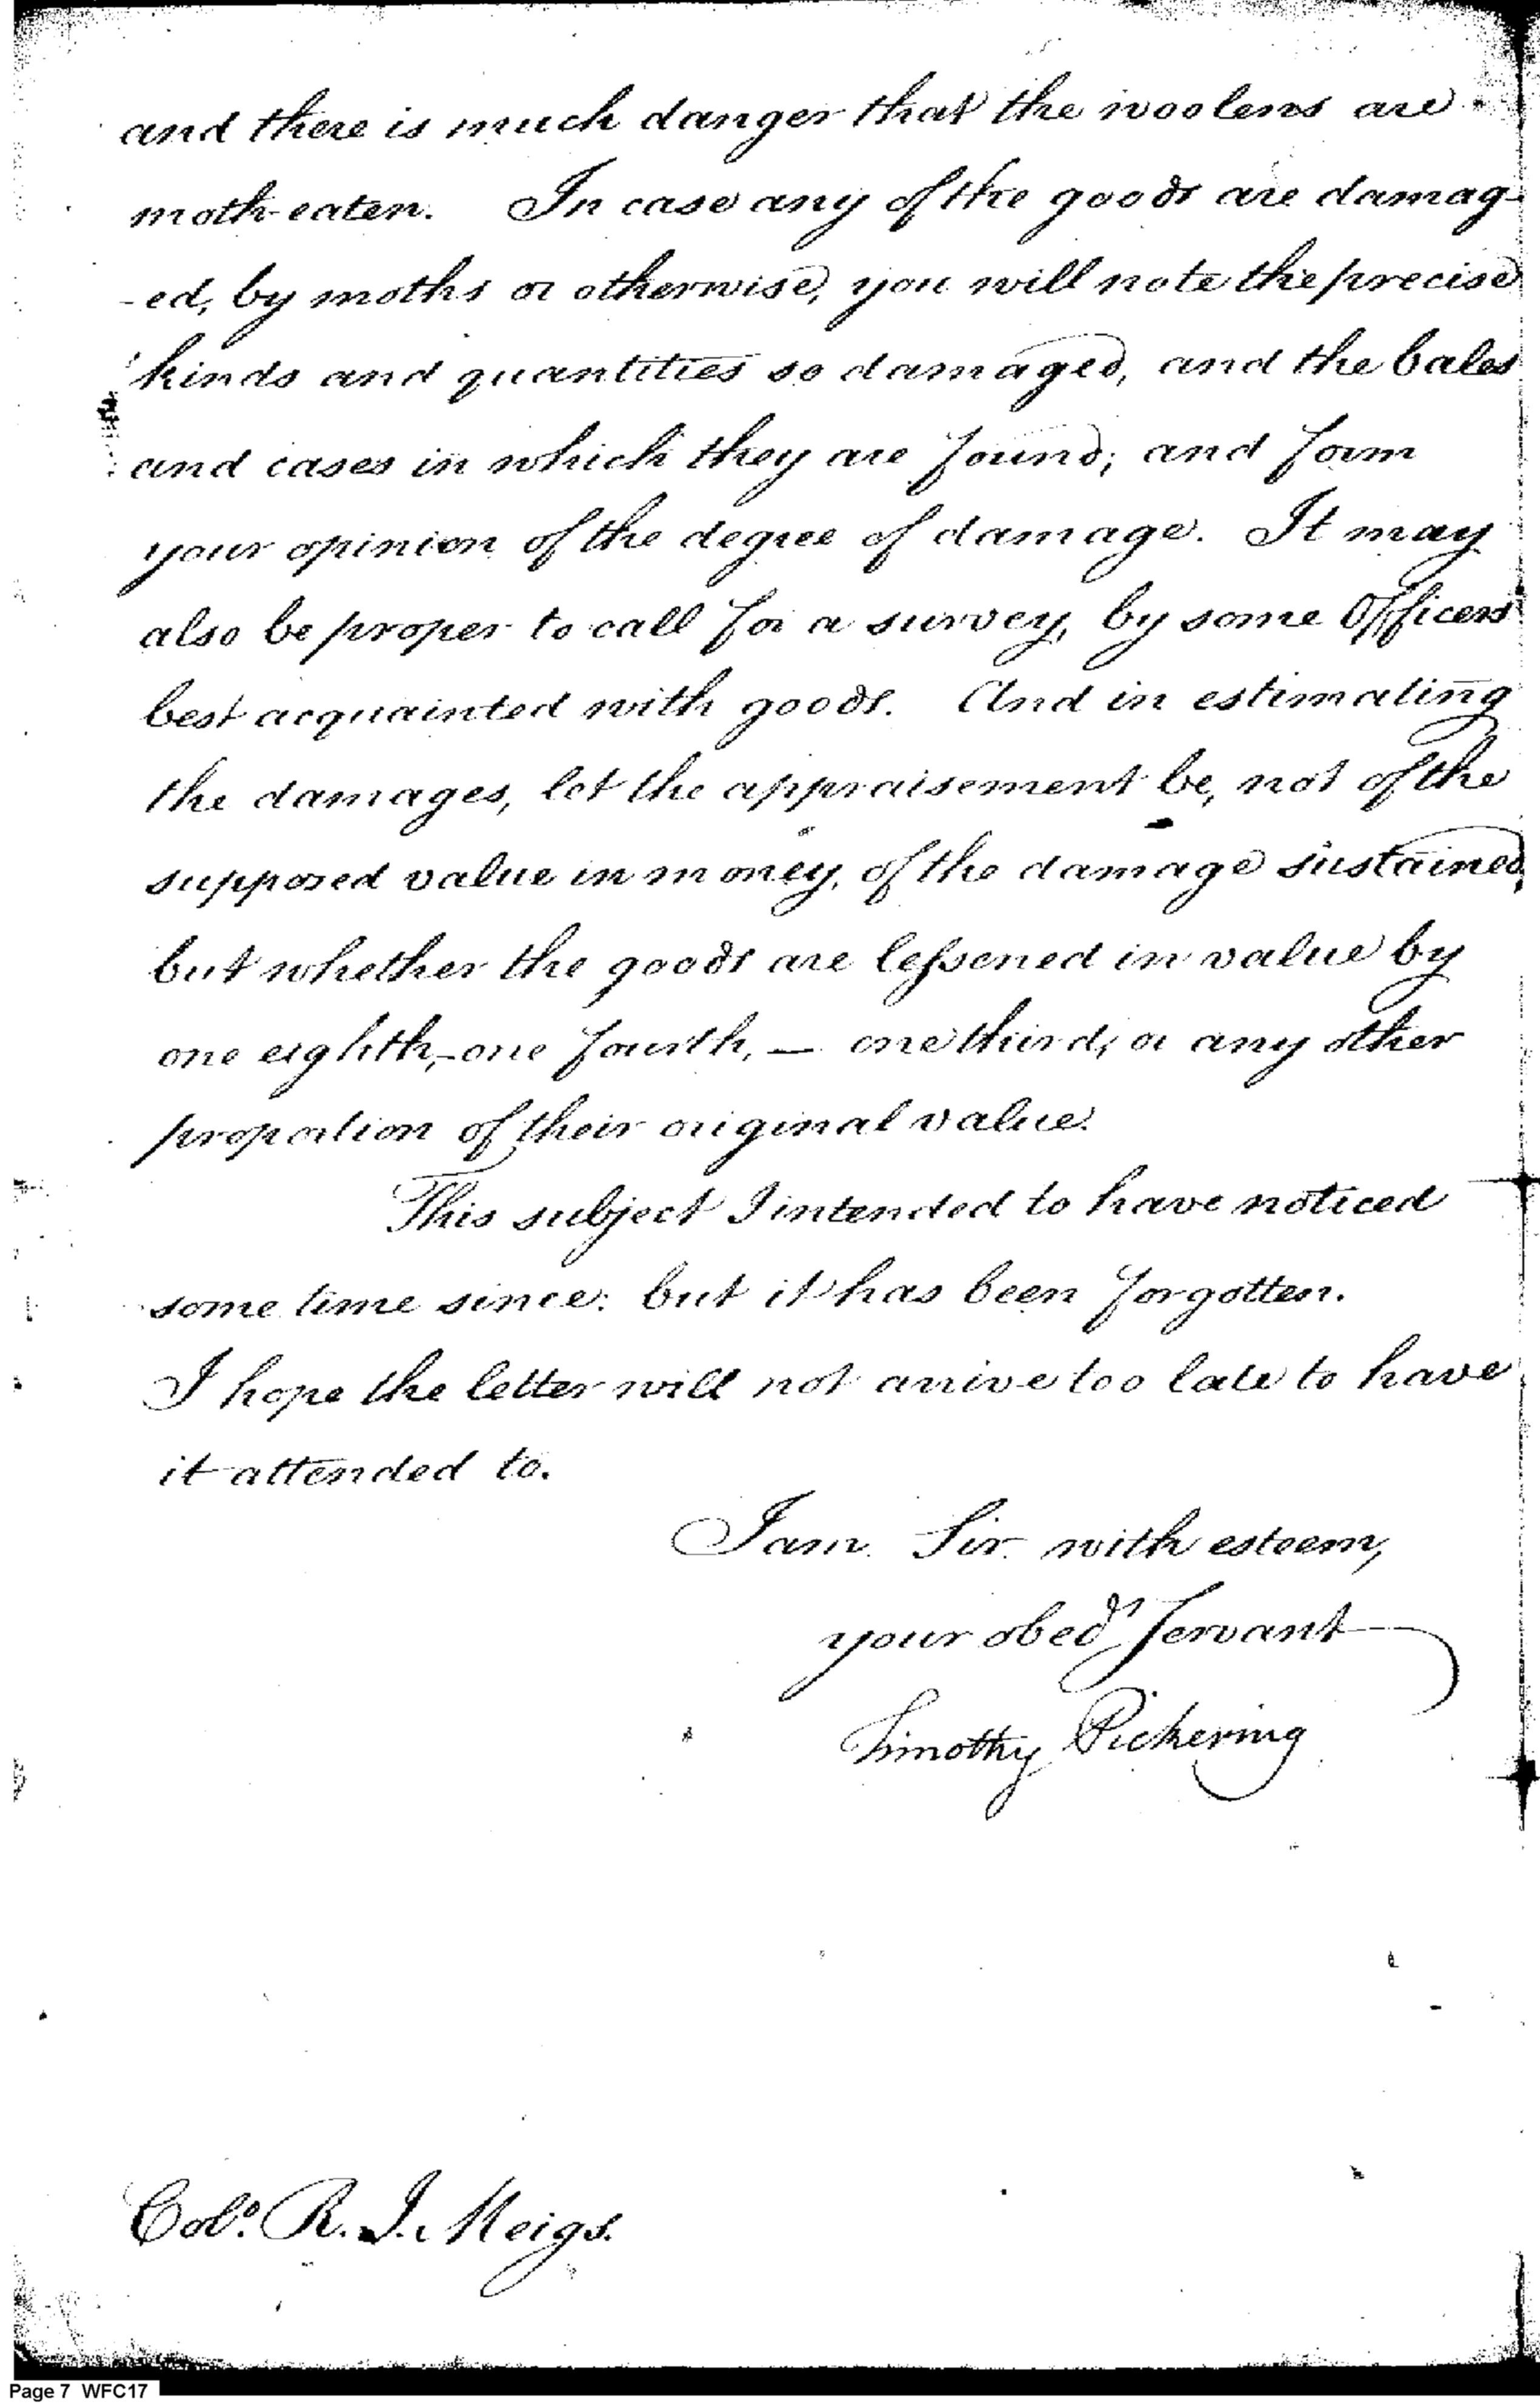 and there is much danger that the woolens are
moth-eaten. In case any of the goods are damag-
-ed, by moths or otherwise, you will note the precise
kinds and quantities so damaged, and the bales
and cases in which they are found; and form
your opinion of the degree of damage. It may
also be proper to call for a survey, by some Officers
best acquainted with goods. And in estimating
the damages, let the appraisement be, not of the
supposed value in money, of the damage sustained,
but whether the goods are lessened in value by
one eighth, - one fourth, — one third, or any other
proportion of their original value.
This subject I intended to have noticed
some time since: but it has been forgotten.
I hope the letter will not arrive too late to have
it attended to.
I am Sir with esteem,
your obedt Servant
Timothy Pickering
Colo. R. J. Meigs.
Page 7 WFC17